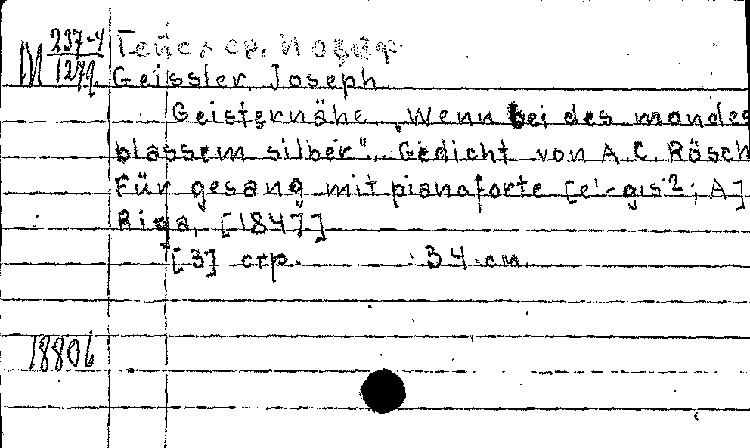 М 237-4/1279.
Гейслер. Иозеф
Geissler, Joseph
Geisternähe „Wenn bei des mondes
blassem silber". Gedicht von A. C. Rösch
Für gesang mit pianoforte [e¹-gis²; A]
Riga, [1847]
[3] стр. 34 см.
18806